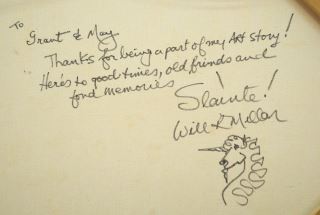 To
Grant & May
Thanks for being a part of my Art story!
Here's to good times, old friends and
fond memories
Slainte!
Will Millar